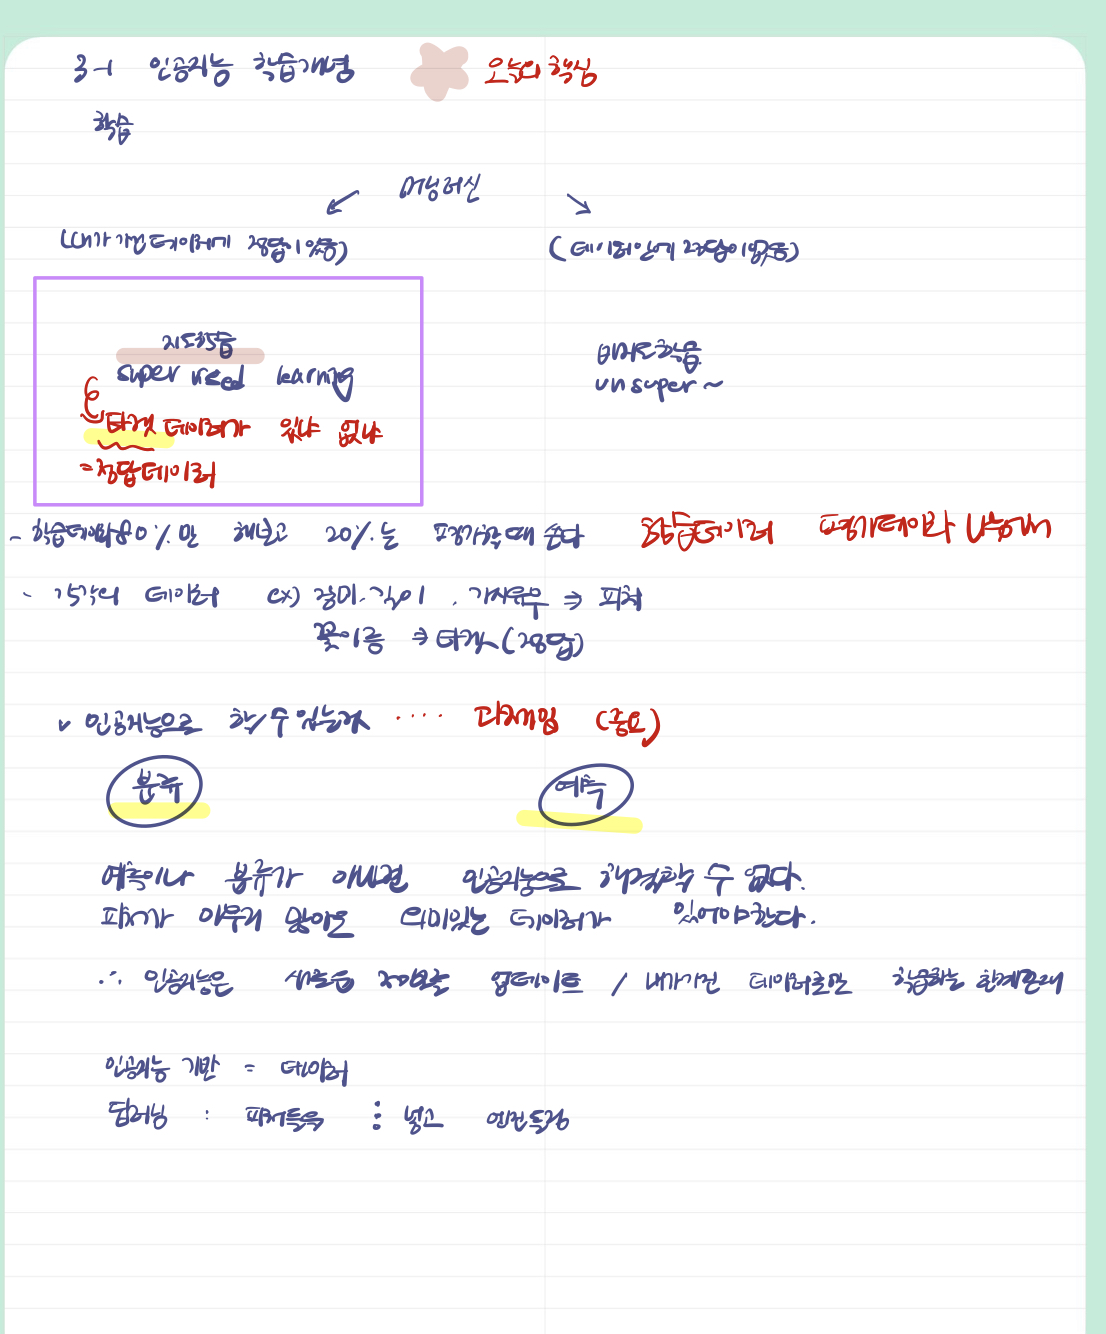 3-1 인공지능 학습개념 오늘의 핵심
학습
머닝러신
(내가 가진 데이터에 정답이 있음) (데이터안에 정답이 없음)
지도학습
supervised learning
타겟 데이터가 있냐 없냐
=정답데이터
비지도학습
un super ~
- 학습데이터 80%만 해보고 20%는 평가할때 쓴다 학습데이터 평가데이터 나눠서
- 각각의 데이터 ex) 길이 ⇒ 피쳐
꽃이름 ⇒ 타겟 (정답)
✓ 인공지능으로 할 수 있는가 ···· 과제임 (중요)
분류 예측
예측이나 분류가 아니면 인공지능으로 해결할 수 없다.
피쳐가 아무리 많아도 의미있는 데이터가 있어야한다.
∴ 인공지능은 새로운 업데이트 / 내가가진 데이터로만 학습하는 한계
인공지능 기반 = 데이터
딥러닝 : 피쳐들을 ⋮ 넣고